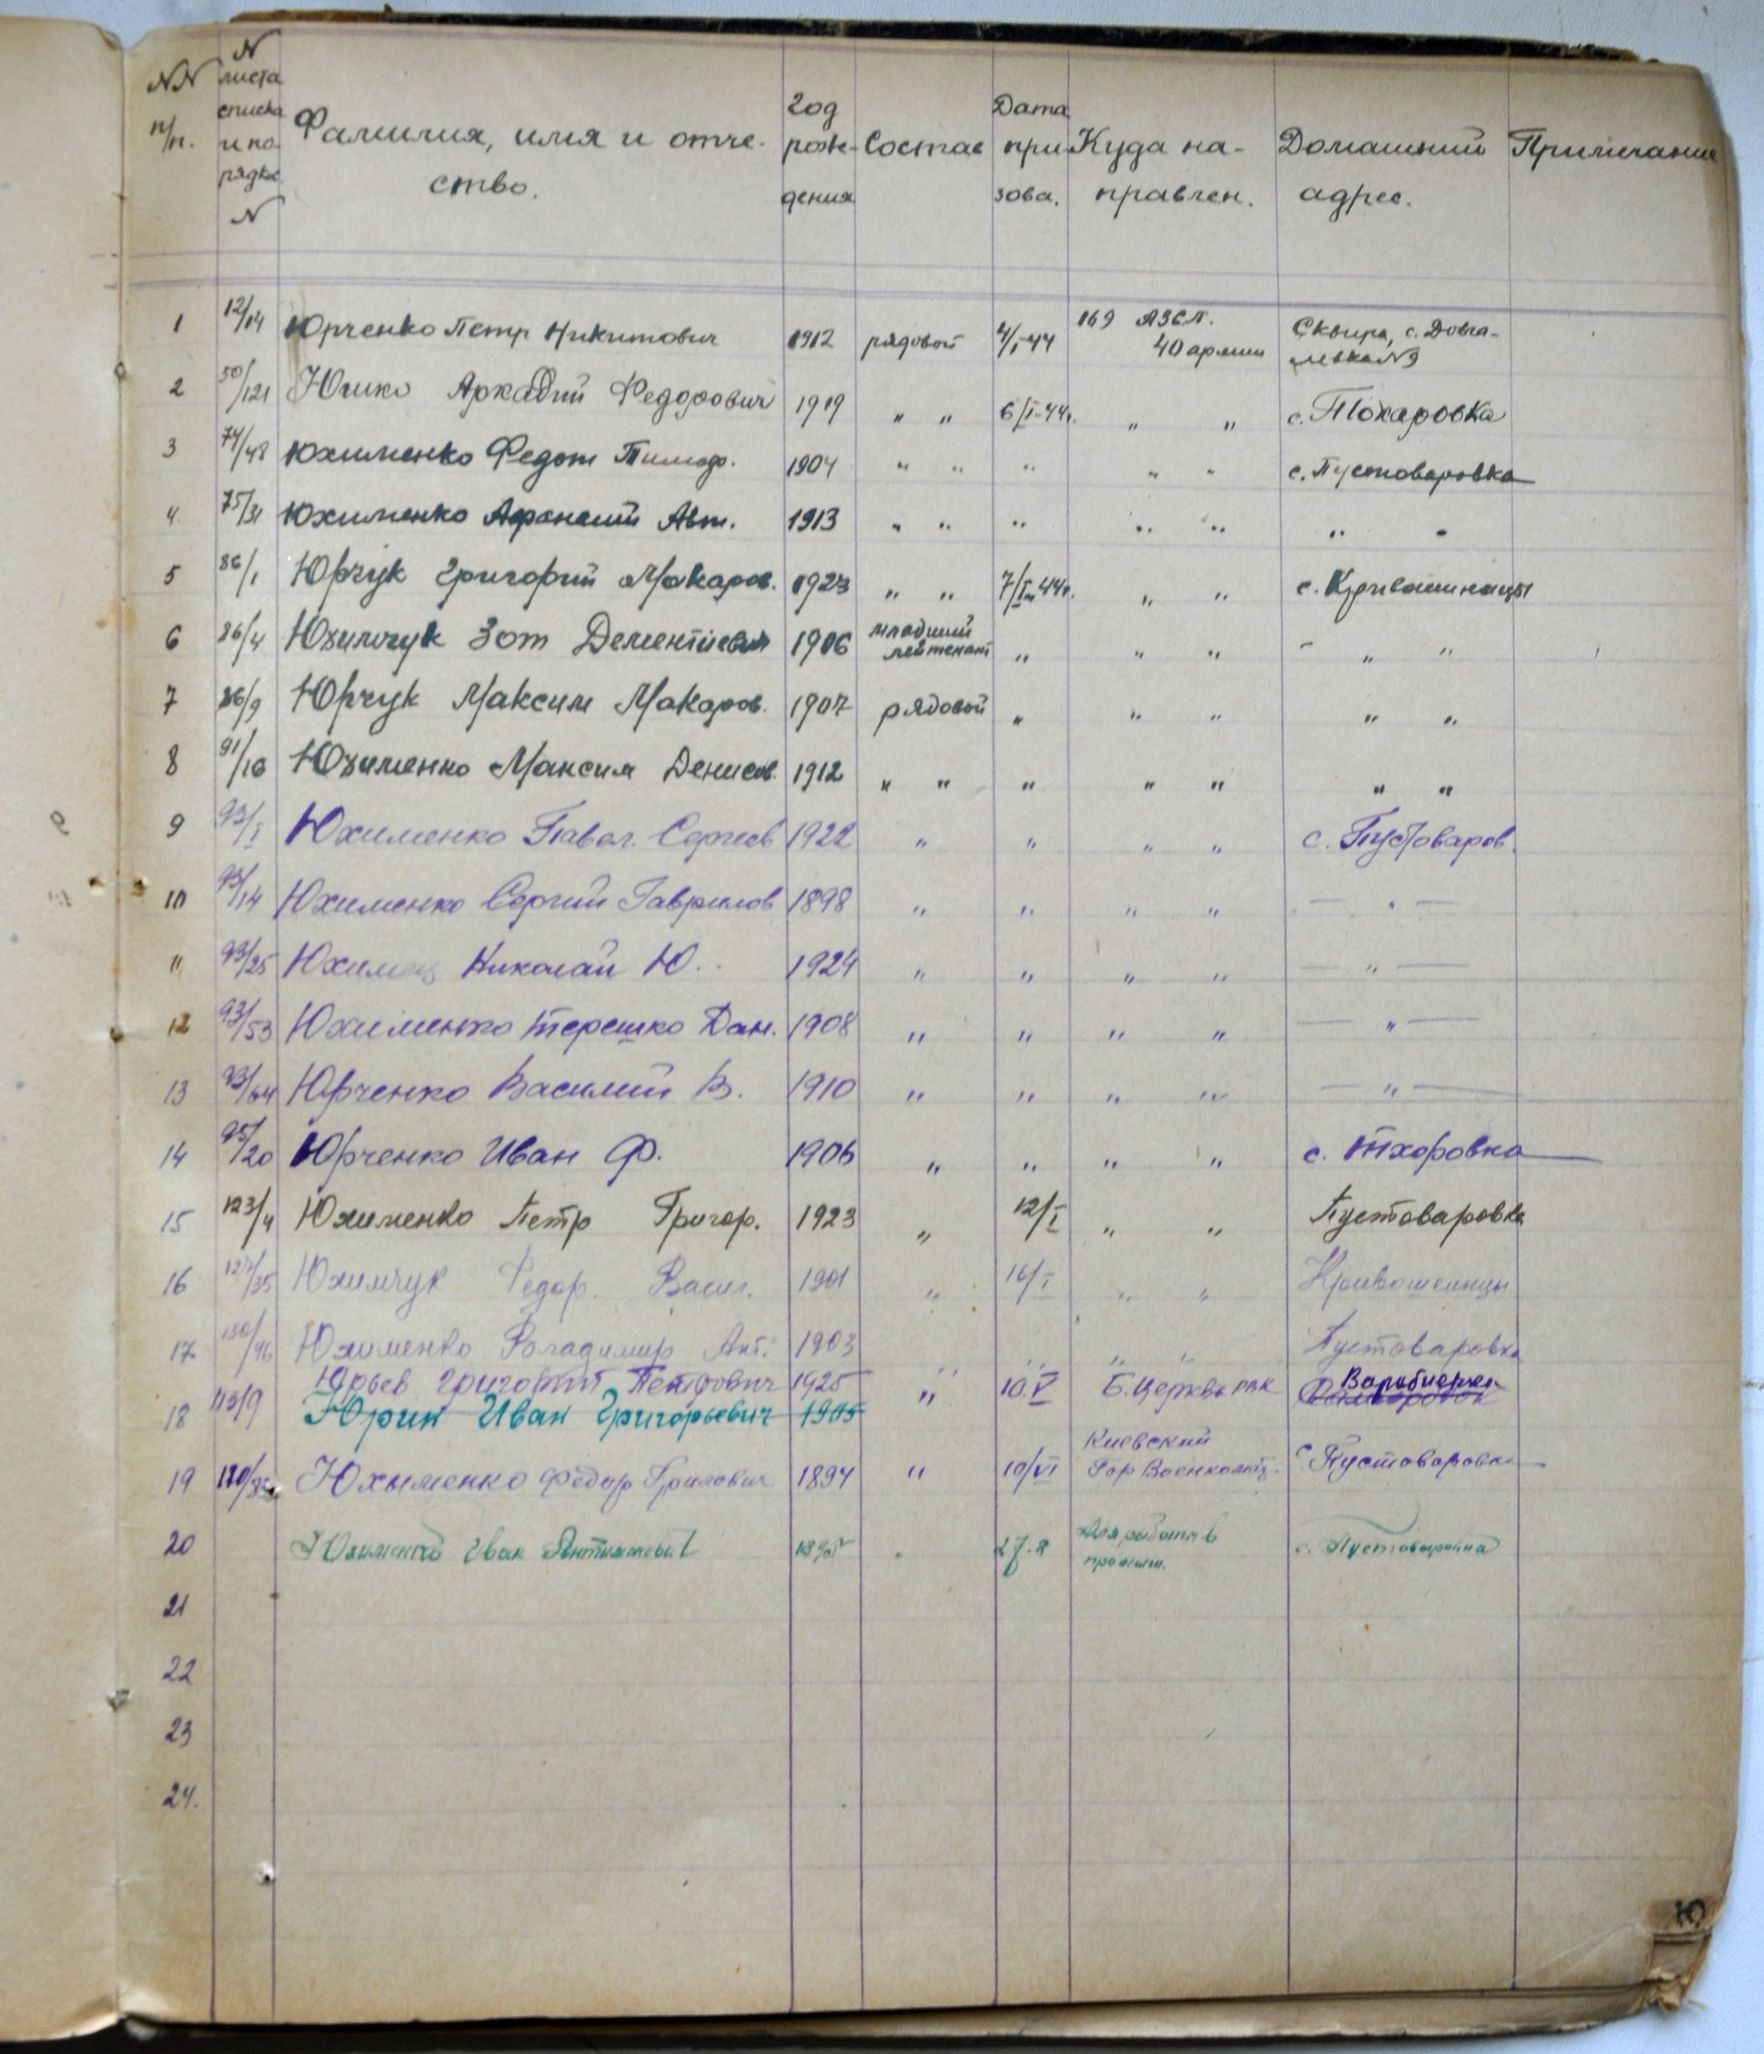 NN п/п. N листа списка и по- рядка N Фамилия, имя и отче- ство. Год рож- дения Состав Дата при- зова. Куда на- правлен. Домашний адрес. Примечание
1 12/14 Юрченко Петр Никитович 1912 рядовой 4/I-44 169 АЗСП. 40 армии Сквира, с. Довга- левка N9
2 50/121 Юшко Аркадий Федорович 1919 " " 6/I-44г. " " с. Тохаровка
3 74/48 Юхименко Федот Тимоф. 1904 " " " " " с. Пустоваровка
4 75/31 Юхименко Афанасий Авт. 1913 " " " " " " "
5 86/1 Юрчук Григорий Макаров. 1923 " " 7/I-44г. " " с. Кривошиинцы
6 86/4 Юхимчук Зот Дементиевич 1906 младший лейтенант " " " " "
7 86/9 Юрчук Максим Макаров. 1907 рядовой " " " " "
8 91/16 Юхименко Максим Денисов. 1912 " " " " " " "
9 93/1 Юхименко Павел. Сергеев 1922 " " " " с. Пустоваров.
10 93/14 Юхименко Сергий Гаврилов 1898 " " " " — " —
11 93/25 Юхимец Николай Ю. 1924 " " " " — " —
12 93/53 Юхименко Терешко Дан. 1908 " " " " — " —
13 93/64 Юрченко Василий В. 1910 " " " " — " —
14 95/20 Юрченко Иван Ф. 1906 " " " " с. Тхоровка
15 123/4 Юхименко Петр Григор. 1923 " 12/I " " Пустоваровка
16 127/35 Юхимчук Федор. Васил. 1901 " 16/I " " Кривошеинцы
17 130/46 Юхименко Владимир Ант. 1903 " " " " Пустоваровка
Юрьев Григорий Петрович 1925 " 10.V Б. Церковь РВК
18 113/9 Юрин Иван Григорьевич 1905
19 120/ Юхыменко Федор Гриллович 1894 " 10/VI Киевский Гор Военкомат. с. Пустоваровка
20 Юхименко Иван " 27. Для работы в промыш. с. Пустоваровка
21
22
23
24.
Ю